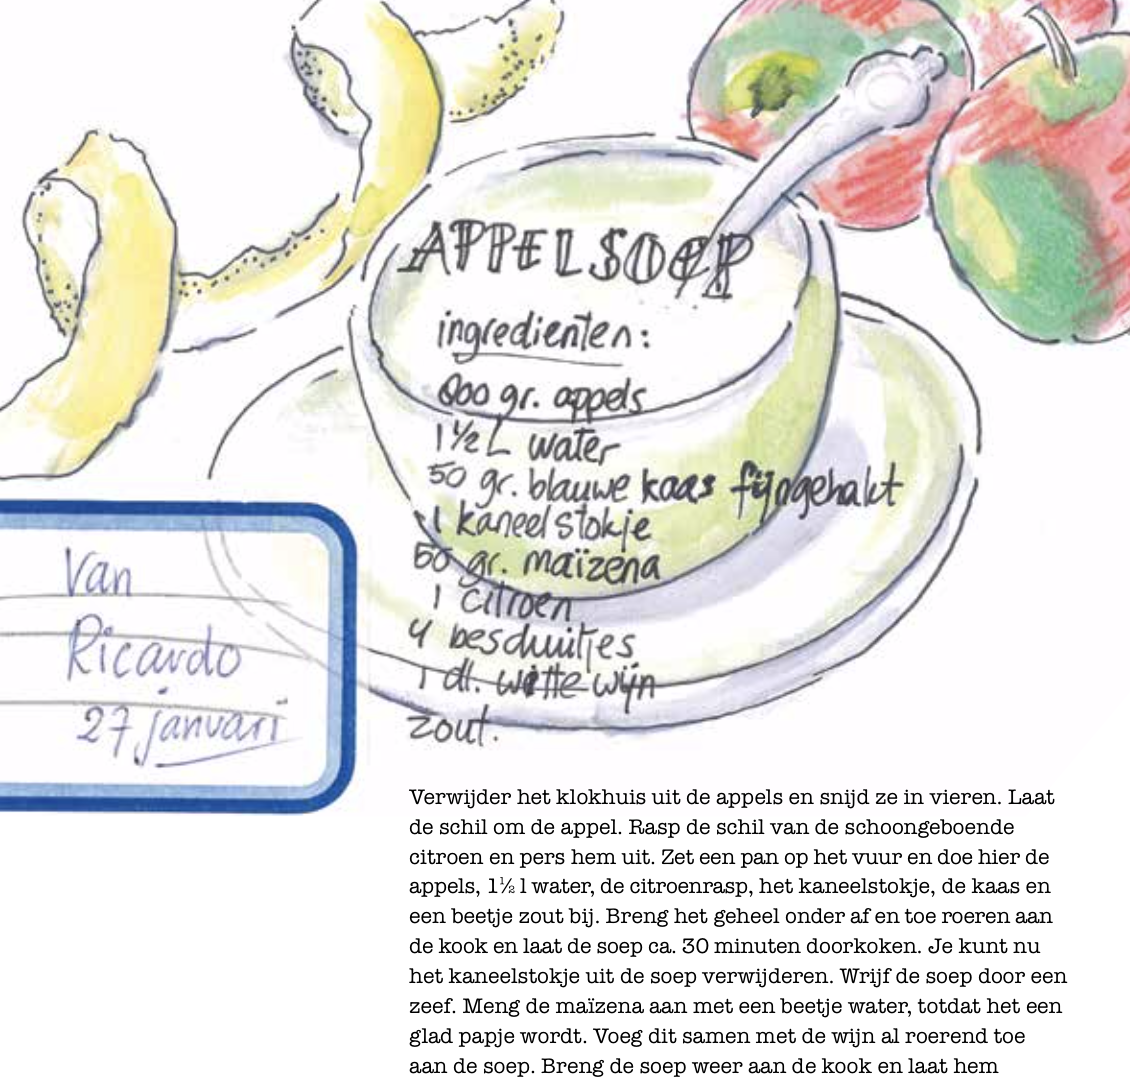 APPELSOEP
ingredienten:
800 gr. appels
1½ L water
50 gr. blauwe kaas fijngehakt
1 kaneelstokje
50 gr. maïzena
1 citroen
4 beschuitjes
1 dl. witte wijn
zout.
Van
Ricardo
27 januari
Verwijder het klokhuis uit de appels en snijd ze in vieren. Laat
de schil om de appel. Rasp de schil van de schoongeboende
citroen en pers hem uit. Zet een pan op het vuur en doe hier de
appels, 1½ l water, de citroenrasp, het kaneelstokje, de kaas en
een beetje zout bij. Breng het geheel onder af en toe roeren aan
de kook en laat de soep ca. 30 minuten doorkoken. Je kunt nu
het kaneelstokje uit de soep verwijderen. Wrijf de soep door een
zeef. Meng de maïzena aan met een beetje water, totdat het een
glad papje wordt. Voeg dit samen met de wijn al roerend toe
aan de soep. Breng de soep weer aan de kook en laat hem